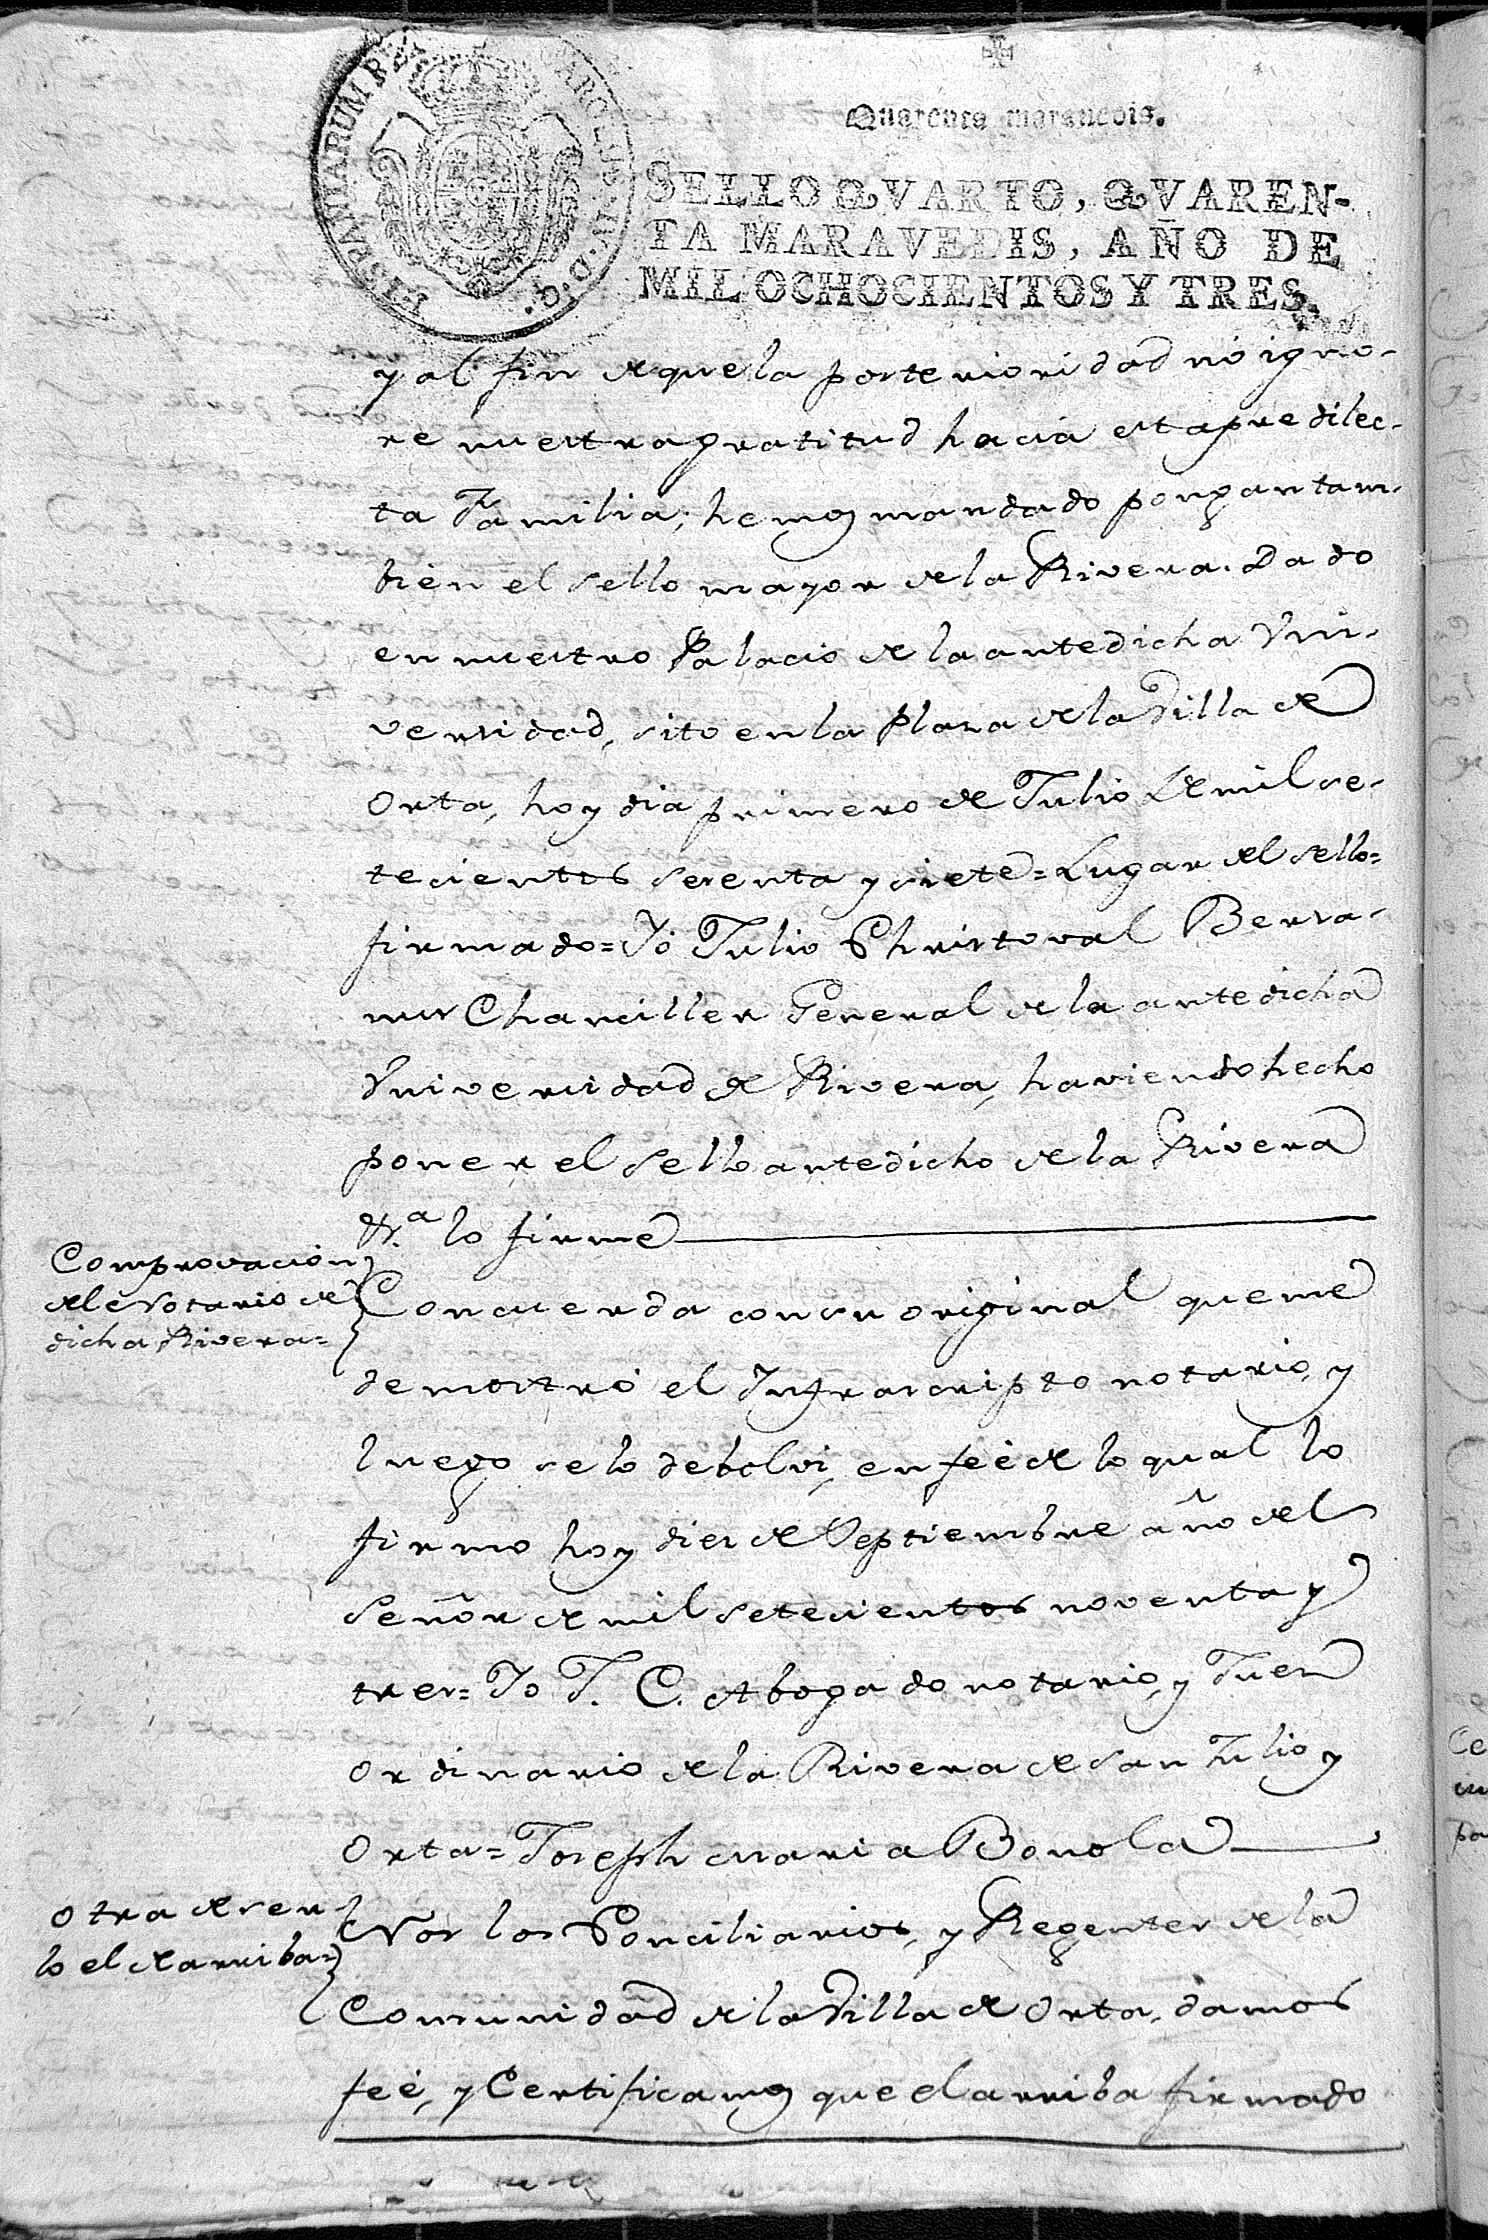 HISPANIARUM REX CAROLUS IV D.G.
Quarenta maravedis.
SELLO QVARTO, QVAREN-
TA MARAVEDIS, AÑO DE
MIL OCHOCIENTOS Y TRES.
y al fin de que la posterioridad nó igno-
re nuestra gratitud hacia esta predilec-
ta Familia; hemos mandado pongan tam-
bien el sello mayor de la Rivera. Dado
en nuestro Palacio de la antedicha Vni-
versidad, sito en la Plaza de la Villa de
Orta, hoy dia primero de Julio de mil se-
tecientos setenta y siete = Lugar del sello =
firmado = Yó Julio Christoval
Chanciller General de la antedicha
Vniversidad de Rivera, haviendo hecho
poner el sello antedicho de la Rivera
&.a lo firmé
Comprovacion
del Notario de
dicha Rivera =
Concuerda con su original que me
demostró el Infrascripto notario, y
luego se lo debolvi, en feé de lo qual lo
firmo hoy diez de Septiembre año del
Señor de mil setecientos noventa y
tres = Yo J. C. Abogado notario, y Juez
Ordinario de la Rivera de San Julio y
Orta = Joseph Maria Bonola
Otra de ser-
lo el de arriba =
Nos los Conciliarios, y Regentes de la
Comunidad de la Villa de Orta, damos
feé, y Certificamos que el arriba firmado